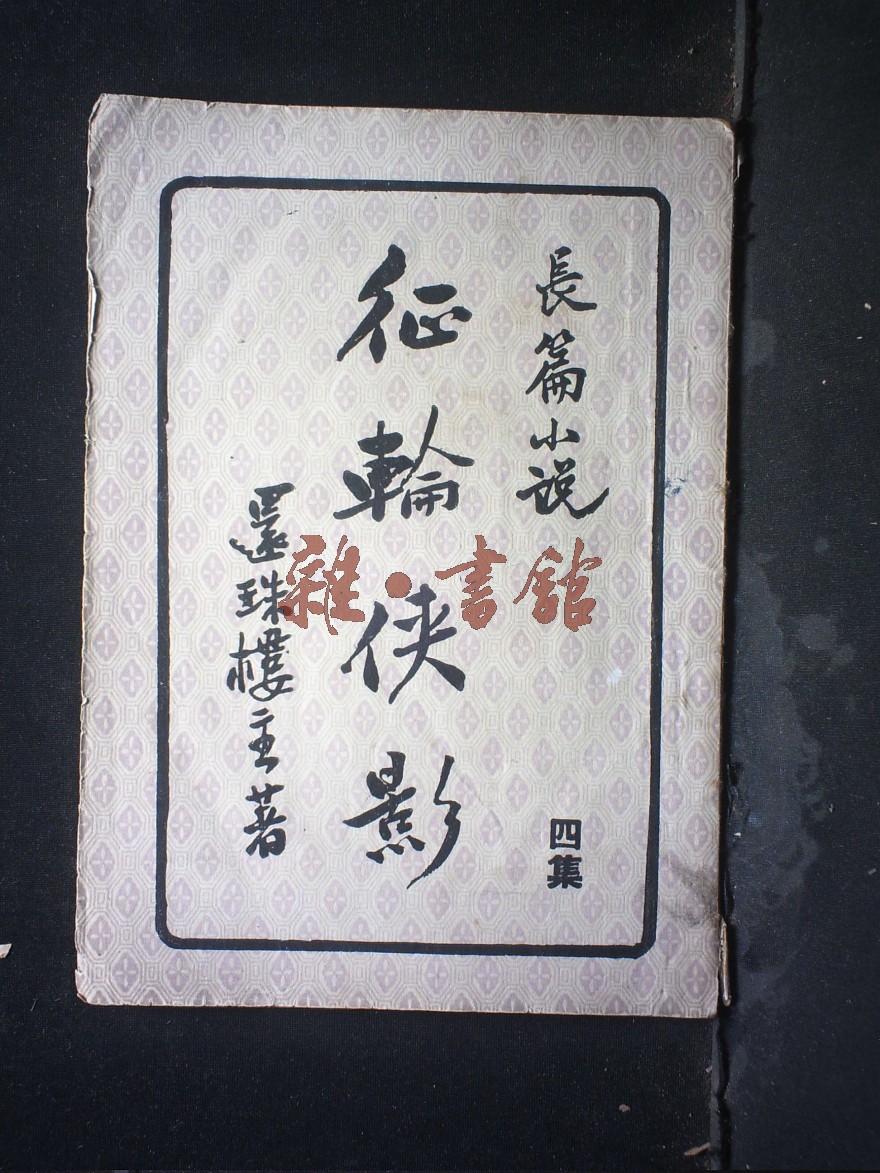 長篇小说
四集
征輪侠影
還珠樓主著
雜·書館